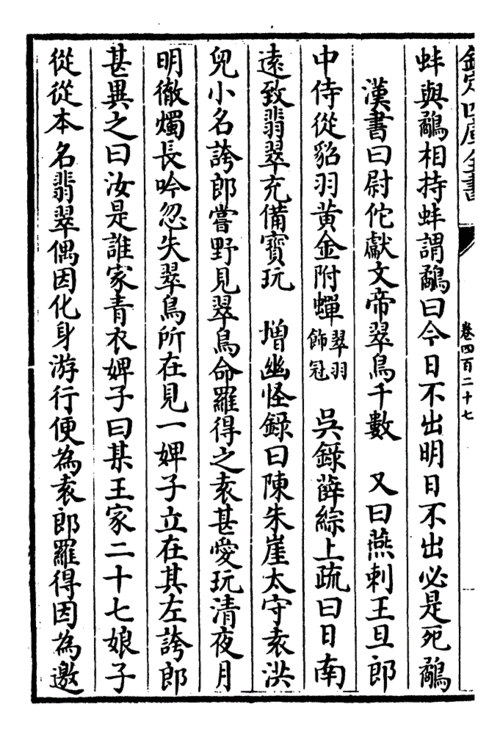 欽定四庫全書
卷四百二十七
蚌與鷸相持蚌謂鷸曰今日不出明日不出必是死鷸
漢書曰尉佗獻文帝翠鳥千數　又曰燕刺王旦郎
中侍從貂羽黄金附蟬翠羽飾冠　吳錄薛綜上疏曰日南
遠致翡翠充備寳玩　増幽怪錄曰陳朱崖太守袁洪
兒小名誇郎嘗野見翠鳥命羅得之袁甚愛玩清夜月
明徹燭長吟忽失翠鳥所在見一婢子立在其左誇郎
甚異之曰汝是誰家青衣婢子曰某王家二十七娘子
從從本名翡翠偶因化身游行便為袁郎羅得因為邀